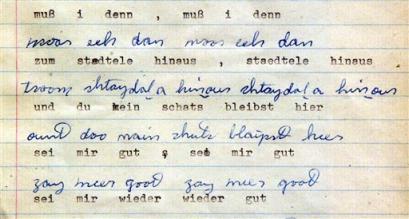 muß i denn , muß i denn
moos eeh dan moos eeh dan
zum staedtele hinaus , staedtele hinaus
tsoom shtaydala hinous shtaydala hinous
und du mein schats bleibst hier
ount doo main shats blaipst heer
sei mir gut , sei mir gut
zay meer good zay meer good
sei mir wieder wieder gut